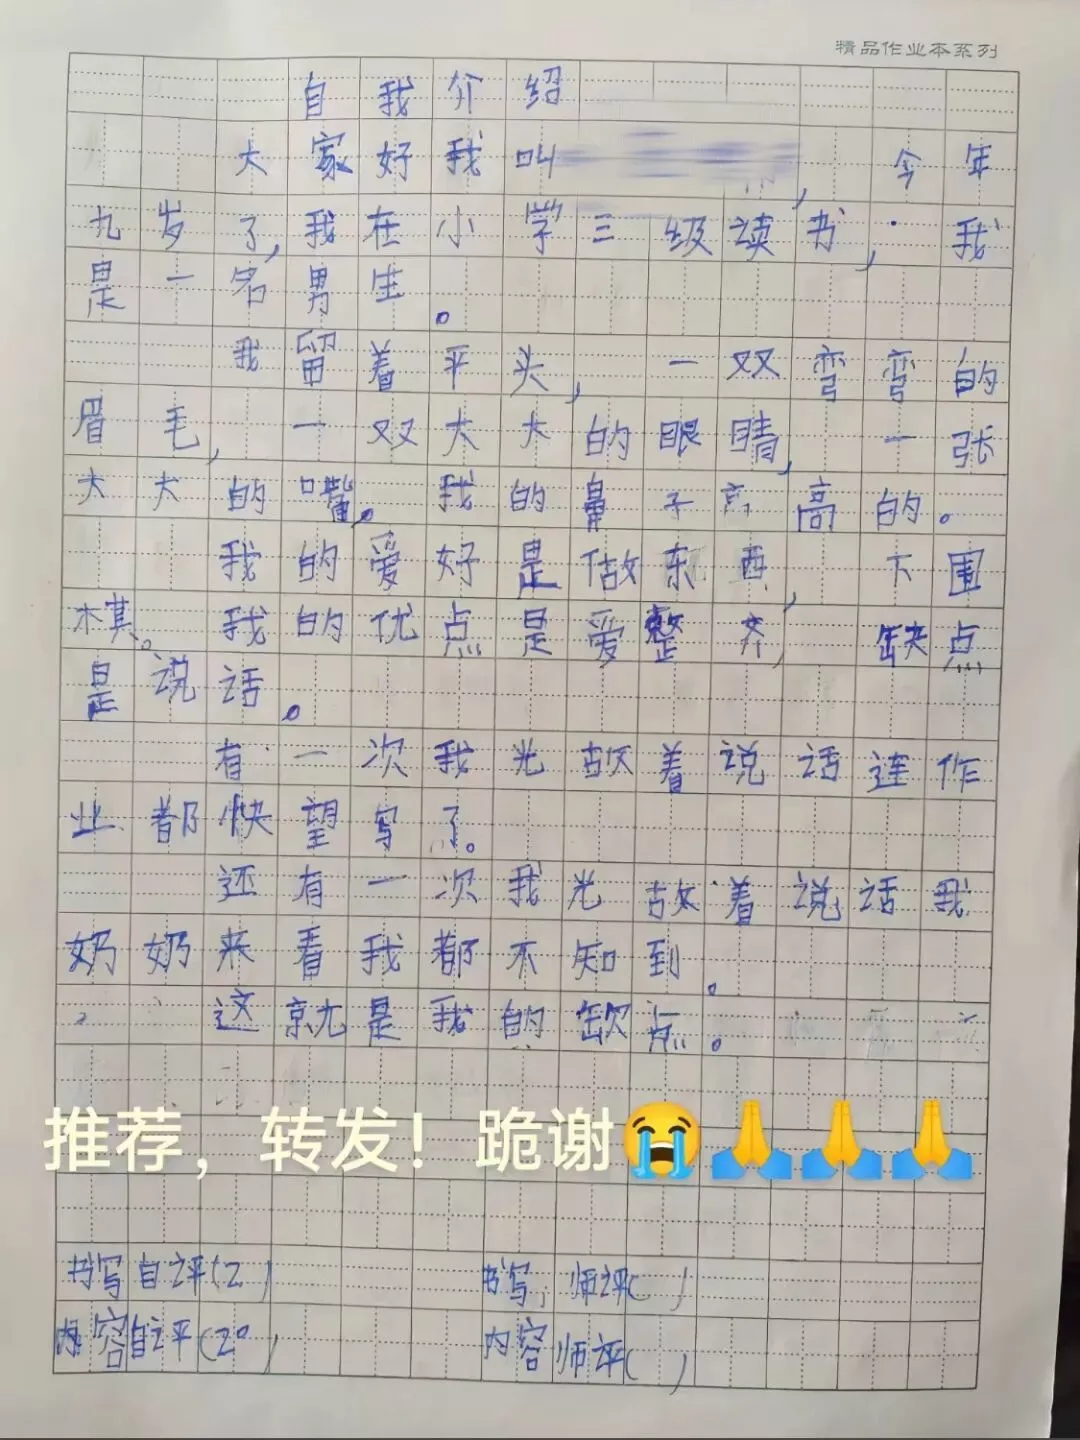 精品作业本系列
自我介绍
大家好我叫 ,今年
九岁了,我在小学三级读书,我
是一名男生。
我留着平头,一双弯弯的
眉毛,一双大大的眼睛,一张
大大的嘴。我的鼻子高高的。
我的爱好是做东西,下围
棋。我的优点是爱整齐,缺点
是说话。
有一次我光故着说话连作
业都快望写了。
还有一次我光故着说话我
奶奶来看我都不知到。
这就是我的缺点。
推荐，转发！跪谢😭🙏🙏🙏
书写自评(2) 书写,师评( )
内容自评(20) 内容师评( )